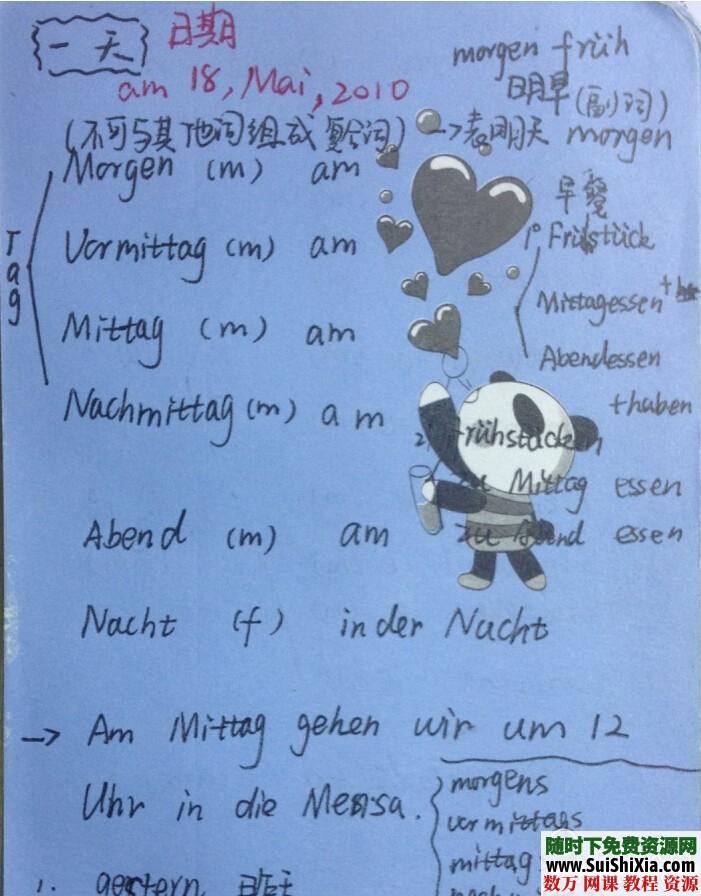 一天 日期
am 18, Mai, 2010
morgen früh
明早(副词)
(不可与其他词组成复合词) → 表明天 morgen
Morgen (m) am
Tag
Vormittag (m) am
Mittag (m) am
Nachmittag (m) am
早餐
1° Frühstück
Mittagessen +
Abendessen
+haben
2° frühstücken
zu Mittag essen
Abend (m) am
zu Abend essen
Nacht (f) in der Nacht
→ Am Mittag gehen wir um 12
Uhr in die Mensa.
morgens
vormittags
mittag
1. gestern 昨天
随时下免费资源网
www.SuiShiXia.com
数万 网课 教程 资源